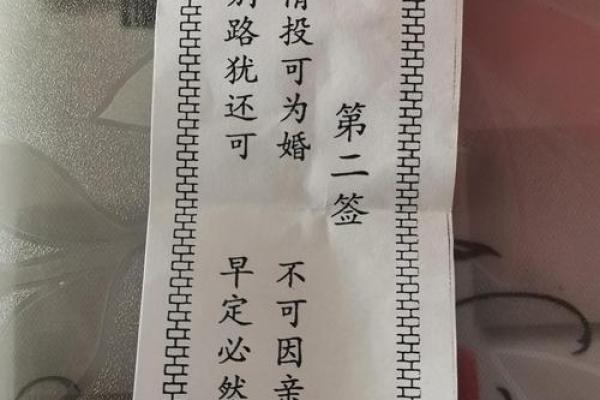 第二签
情投可为婚
不可因亲
别路犹还可
早定必然